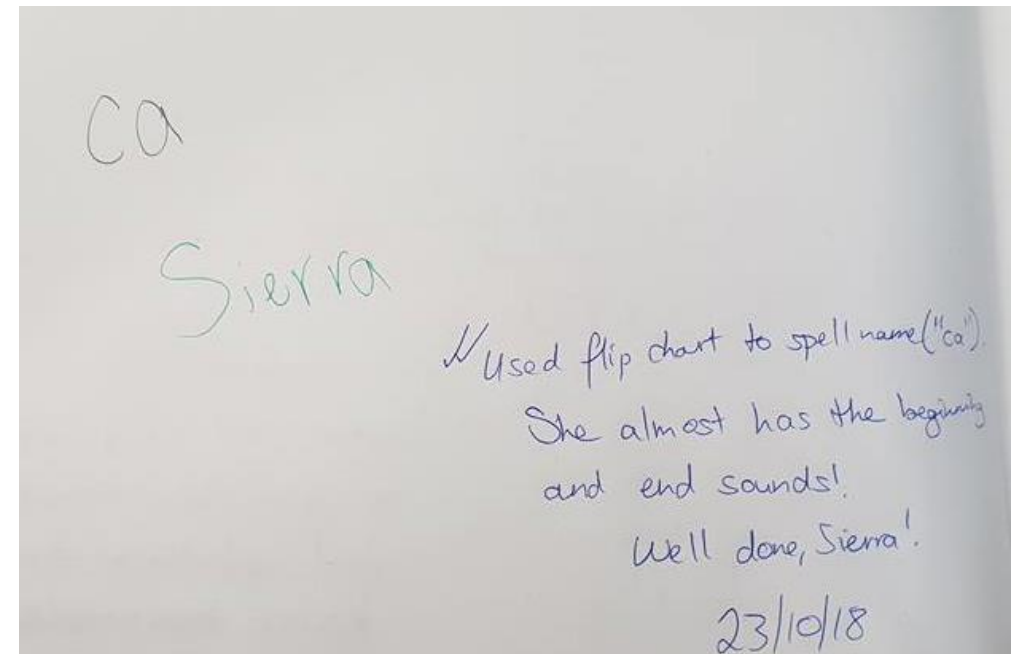 ca
Sierra
Used flip chart to spell name ("ca").
She almost has the beginning
and end sounds!
Well done, Sierra!
23/10/18